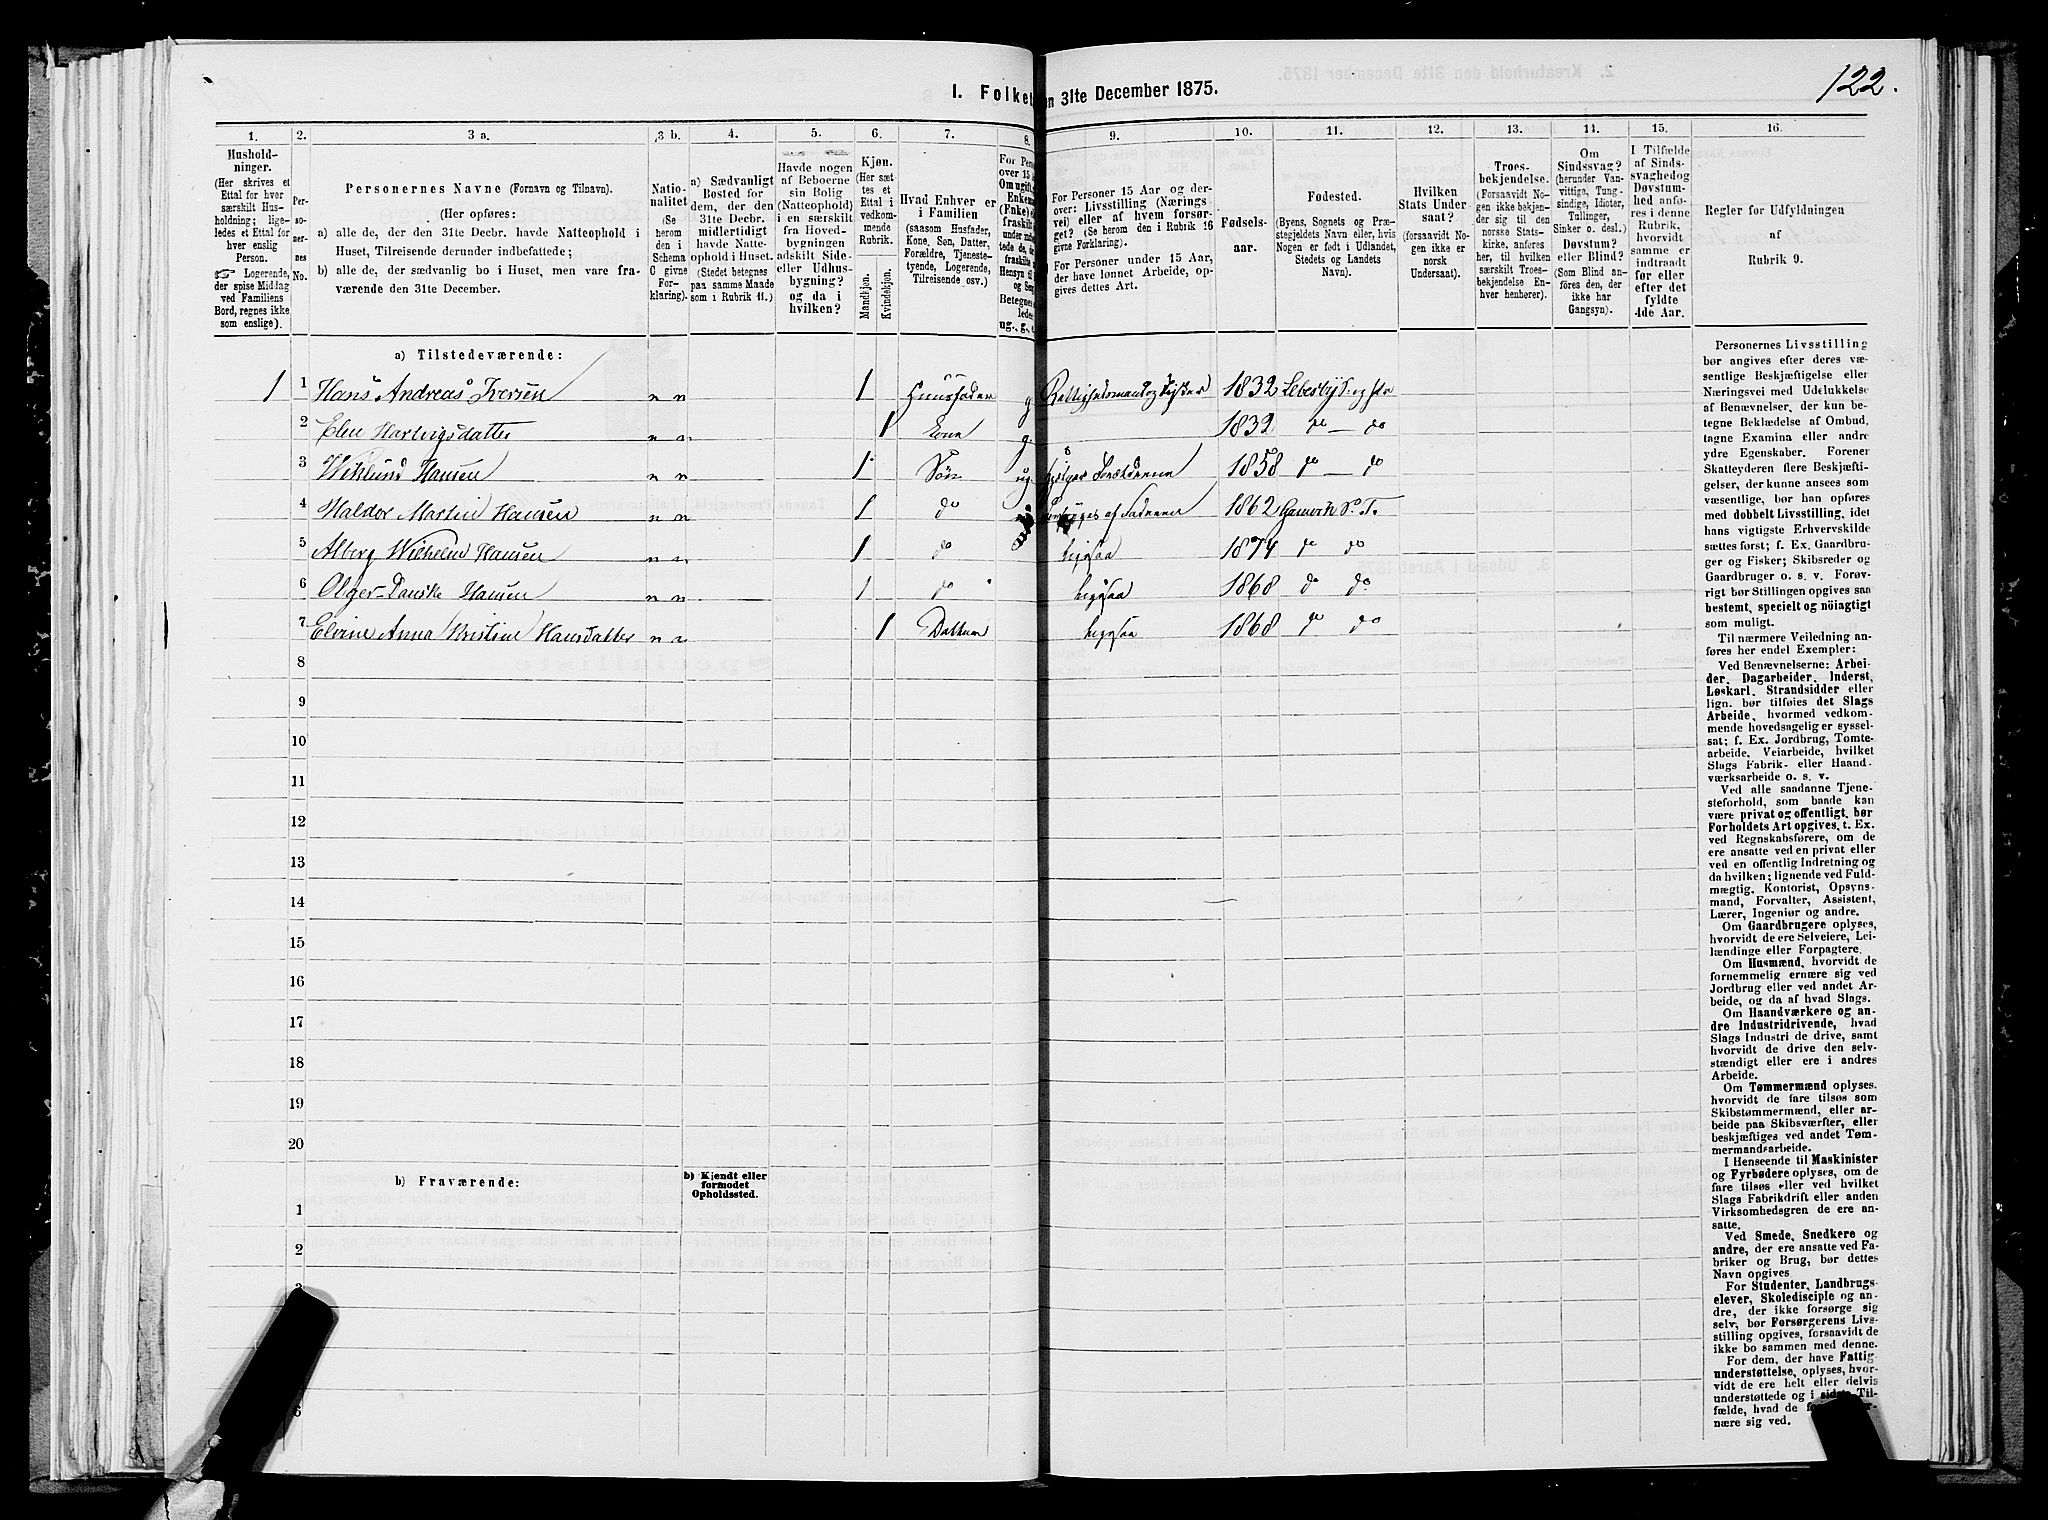 122.
I. Folket
en 31te December 1875.
1. 2. 3 a. 3 b. 4. 5. 6. 7. 8. 9. 10. 11. 12. 13. 14. 15. 16.
Hushold-
ninger.
(Her skrives et
Ettal for hver
særskilt Hus-
holdning; lige-
ledes et Ettal for
hver enslig
Person.
☞ Logerende,
der spise Middag
ved Familiens
Bord, regnes ikke
som enslige).
Per-
so-
ner-
nes
No.
Personernes Navne (Fornavn og Tilnavn).
(Her opføres:
a) alle de, der den 31te Decbr. havde Natteophold i
Huset, Tilreisende derunder indbefattede;
b) alle de, der sædvanlig bo i Huset, men vare fra-
værende den 31te December.
Natio-
nalitet
(Se
herom
den i
Schema
C givne
For-
klaring).
a) Sædvanligt
Bosted for
dem, der den
31te Decbr.
midlertidigt
havde Natte-
ophold i Huset.
(Stedet betegnes
paa samme Maade
som i Rubrik 11.)
Havde nogen
af Beboerne
sin Bolig
(Natteophold)
i en særskilt
fra Hoved-
bygningen
adskilt Side-
eller Udhus-
bygning?
og da i
hvilken?
Kjøn.
(Her sæt-
tes et
Ettal i
vedkom-
mende
Rubrik.
Mandkjøn.
Kvindekjøn.
Hvad Enhver er
i Familien
(saasom Husfader,
Kone, Søn, Datter,
Forældre, Tjeneste-
tyende, Logerende,
Tilreisende osv.)
For Pers
over 15
Om ugift,
Enkem
(Enke)
fraskilt
under
tede de,
fraskilte
Hensyn til
og Sen
Betegnes
ledes
ug., g.,
For Personer 15 Aar og der-
over: Livsstilling (Nærings
vei) eller af hvem forsør-
get? (Se herom den i Rubrik 16
givne Forklaring).
For Personer under 15 Aar,
der have lønnet Arbeide, op-
gives dettes Art.
Fødsels-
aar.
Fødested.
(Byens, Sognets og Præ-
stegjeldets Navn eller, hvis
Nogen er født i Udlandet,
Stedets og Landets
Navn).
Hvilken
Stats Under
saat?
(forsaavidt No-
gen ikke er
norsk
Undersaat).
Troes-
bekjendelse.
(Forsaavidt No-
gen ikke bekjen-
der sig til den
norske Stats-
kirke, anfø-
res her, til hvilken
særskilt Troes-
bekjendelse En-
hver henhører).
Om
Sindssvag?
(herunder Van-
vittige, Tung-
sindige, Idioter,
Tullinger,
Sinker o. desl.)
Døvstum?
eller Blind?
(Som Blind an-
føres den, der
ikke har
Gangsyn).
I Tilfælde
af Sinds-
svaghedog
Døvstum-
hed anfø-
res i denne
Rubrik,
hvorvidt
samme er
indtraadt
før eller
efter det
fyldte
4de Aar.
Regler for Udfyldningen
af
Rubrik 9.
a) Tilstedeværende:
1 1 Hans Andreas Iversen n n 1 Huusfader g 1832 Lebesby
2 Elen Hartvigsdatter n n 1 Kone g 1832 do — do
3 Wiklund Hansen n n 1 Søn ug 1858 do — do
4 Haldor Martin Hansen n n 1 do af Faderen 1862 Gamvik S. T.
5 Alberg Wilhelm Hansen n n 1 do ligesaa 1874 do do
6 Olger-Danske Hansen n n 1 do ligesaa 1868 do do
7 Elvine Anna Kristine Hansdatter n n 1 Datter ligesaa 1868 do do
8
9
10
11
12
13
14
15
16
17
18
19
20
b) Fraværende:
b) Kjendt eller
formodet
Opholdssted.
1
2
3
6
Personernes Livsstilling
bør angives efter deres væ-
sentlige Beskjæftigelse eller
Næringsvei med Udelukkelse
af Benævnelser, der kun be-
tegne Beklædelse af Ombud,
tagne Examina eller andre
ydre Egenskaber. Forener
Skatteyderen flere Beskjæfti-
gelser, der kunne ansees som
væsentlige, bør han opføres
med dobbelt Livsstilling, idet
hans vigtigste Erhvervskilde
sættes først; f. Ex. Gaardbru-
ger og Fisker; Skibsreder og
Gaardbruger o. s. v. Forøv-
rigt bør Stillingen opgives saa
bestemt, specielt og nöiagtigt
som muligt.
Til nærmere Veiledning an-
føres her endel Exempler:
Ved Benævnelserne: Arbei-
der, Dagarbeider, Inderst,
Løskarl, Strandsidder eller
lign. bør tilføies det Slags
Arbeide, hvormed vedkom-
mende hovedsagelig er syssel-
sat; f. Ex. Jordbrug, Tomte-
arbeide, Veiarbeide, hvilket
Slags Fabrik- eller Haand-
værksarbeide o. s. v.
Ved alle saadanne Tjene-
steforhold, som baade kan
være privat og offentligt, bør
Forholdets Art opgives, t. Ex.
ved Regnskabsførere, om de
ere ansatte ved en privat eller
ved en offentlig Indretning og
da hvilken; lignende ved Fuld-
mægtig, Kontorist, Opsyns-
mand, Forvalter, Assistent,
Lærer, Ingeniør og andre.
Om Gaardbrugere oplyses,
hvorvidt de ere Selveiere, Lei-
lændinge eller Forpagtere.
Om Husmænd, hvorvidt de
fornemmelig ernære sig ved
Jordbrug eller ved andet Ar-
beide, og da af hvad Slags.
Om Haandværkere og an-
dre Industridrivende, hvad
Slags Industri de drive, samt
hvorvidt de drive den selv-
stændigt eller ere i andres
Arbeide.
Om Tømmermænd oplyses,
hvorvidt de fare tilsøs som
Skibstømmermænd, eller ar-
beide paa Skibsværfter, eller
beskjæftiges ved andet Tøm-
mermandsarbeide.
I Henseende til Maskinister
og Fyrbødere oplyses, om de
fare tilsøs eller ved hvilket
Slags Fabrikdrift eller anden
Virksomhedsgren de ere an-
satte.
Ved Smede, Snedkere og
andre, der ere ansatte ved Fa-
briker og Brug, bør dettes
Navn opgives
For Studenter, Landbrugs-
elever, Skoledisciple og an-
dre, der ikke forsørge sig
selv, bør Forsørgerens Livs-
stilling opgives, forsaavidt de
ikke bo sammen med denne.
For dem, der have Fattig-
understøttelse, oplyses, hvor-
vidt de ere helt eller delvis
understøttede og i sidste Til-
fælde, hvad de
nære sig ved.